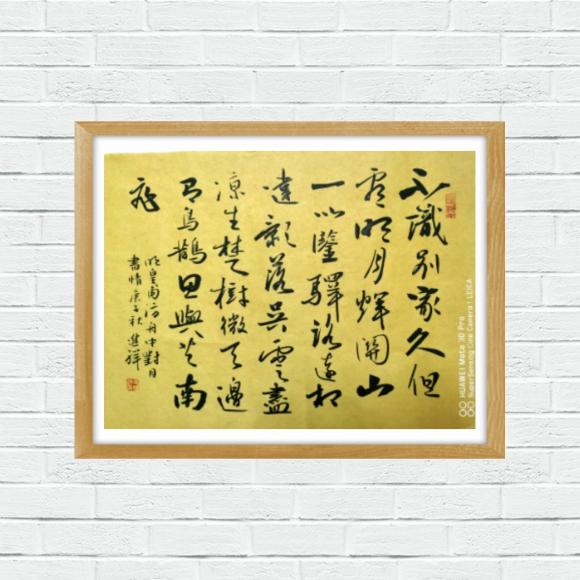 不識別家久但
看明月煇關山
一以鑒驛路遠相
違影落吳雲盡
凉生楚樹微天邊
有烏鵲思與共南
飛
明皇甫汸舟中對月
書情庚子秋進祥
HUAWEI Mate 30 Pro
SuperSensing Cine Camera | LEICA